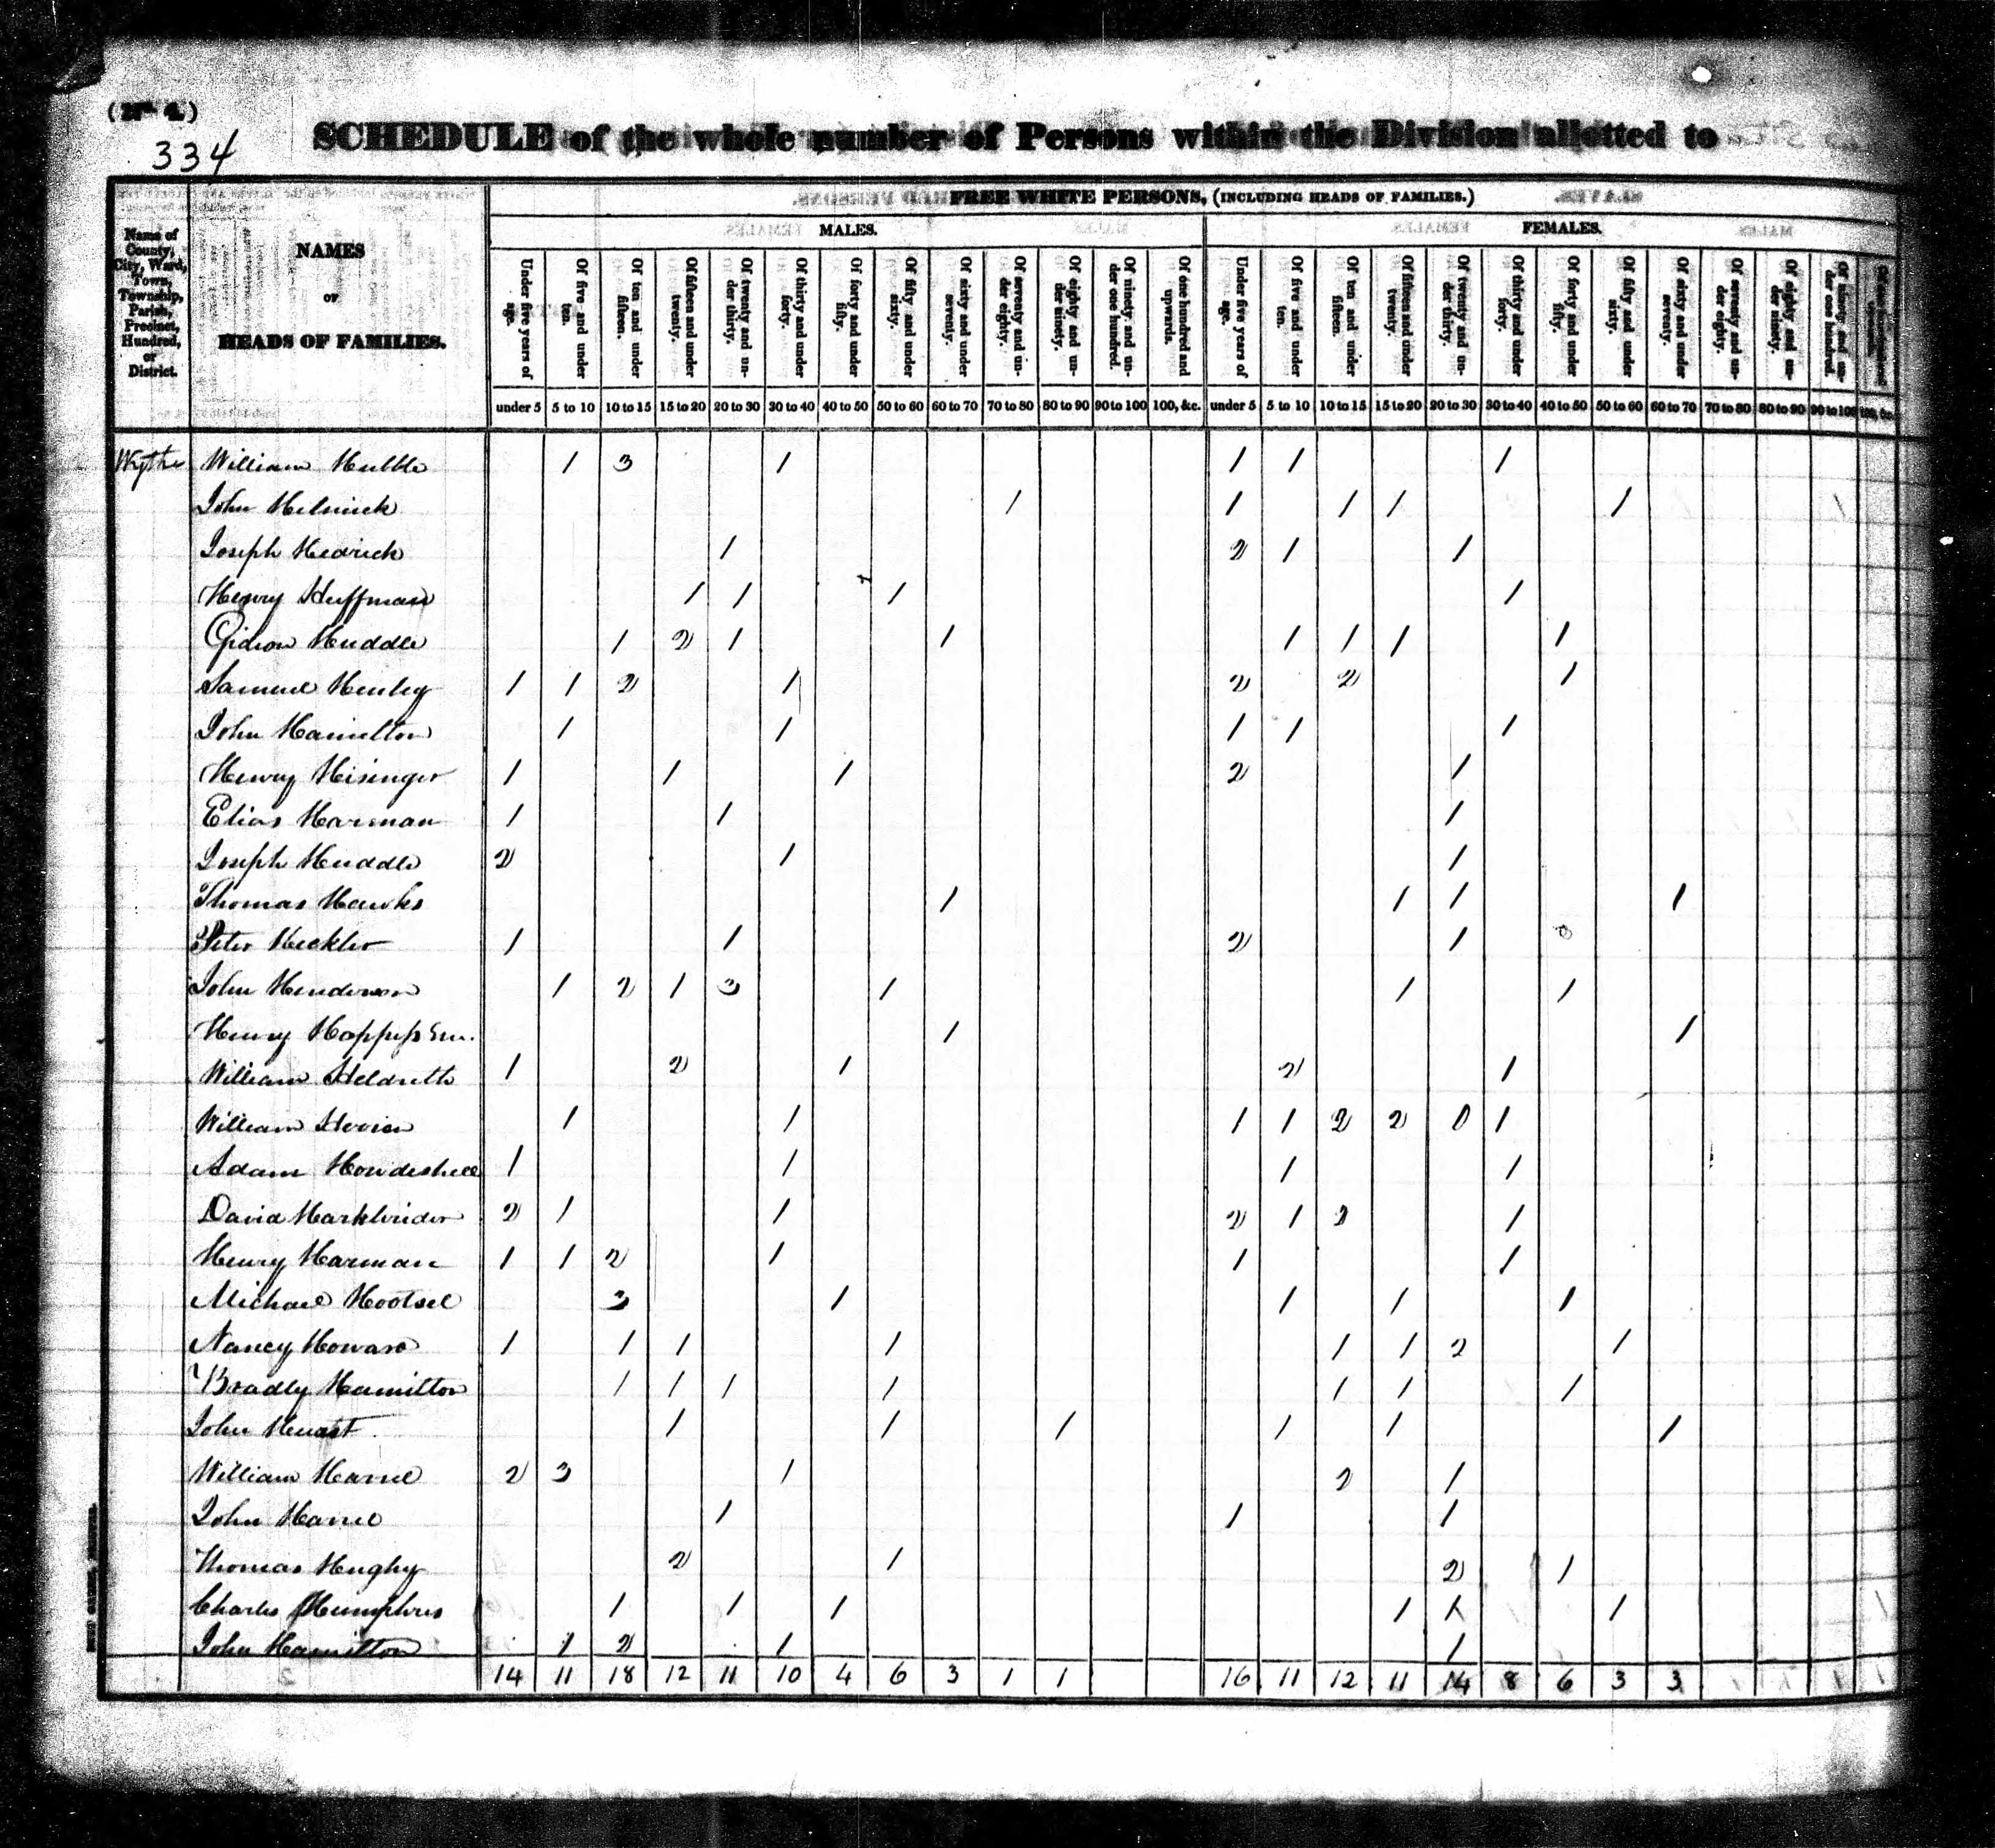 (No. 4.)
334
SCHEDULE of the whole number of Persons within the Division allotted to
FREE WHITE PERSONS, (INCLUDING HEADS OF FAMILIES.)
MALES. FEMALES.
Name of County, City, Ward, Town, Township, Parish, Precinct, Hundred, or District.
NAMES
OF
HEADS OF FAMILIES.
Under five years of age. Of five and under ten. Of ten and under fifteen. Of fifteen and under twenty. Of twenty and under thirty. Of thirty and under forty. Of forty and under fifty. Of fifty and under sixty. Of sixty and under seventy. Of seventy and under eighty. Of eighty and under ninety. Of ninety and under one hundred. Of one hundred and upwards. Under five years of age. Of five and under ten. Of ten and under fifteen. Of fifteen and under twenty. Of twenty and under thirty. Of thirty and under forty. Of forty and under fifty. Of fifty and under sixty. Of sixty and under seventy. Of seventy and under eighty. Of eighty and under ninety. Of ninety and under one hundred.
under 5 5 to 10 10 to 15 15 to 20 20 to 30 30 to 40 40 to 50 50 to 60 60 to 70 70 to 80 80 to 90 90 to 100 100, &c. under 5 5 to 10 10 to 15 15 to 20 20 to 30 30 to 40 40 to 50 50 to 60 60 to 70 70 to 80 80 to 90 90 to 100 100, &c.
Wythe William Hubble 1 3 1 1 1 1
John Helmick 1 1 1 1 1
Joseph Hedrick 1 2 1 1
Henry Huffman 1 1 1 1
Gideon Huddle 1 2 1 1 1 1 1 1
Samuel Henley 1 1 2 1 2 2 1
John Hamilton 1 1 1 1 1
Henry Hisinger 1 1 1 2 1
Elias Harman 1 1 1
Joseph Huddle 2 1 1
Thomas Hawks 1 1 1 1
Peter Heckler 1 1 2 1
John Henderson 1 2 1 3 1 1 1
Henry Hoppess 1 1
William Heldreth 1 2 1 2 1
William 1 1 1 1 2 2 0 1
Adam Howdeshell 1 1 1 1
David Harklerider 2 1 1 2 1 2 1
Henry Harman 1 1 2 1 1 1
Michael Hootsel 3 1 1 1 1
Nancy Howard 1 1 1 1 1 1 2 1
Bradly Hamilton 1 1 1 1 1 1 1
John 1 1 1 1 1 1
William 2 3 1 2 1
John 1 1 1
Thomas Hughy 2 1 2 1
Charles Humphres 1 1 1 1 1 1
John Hamilton 1 2 1 1
14 11 18 12 11 10 4 6 3 1 1 16 11 12 11 14 8 6 3 3